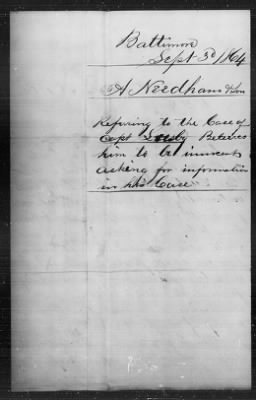 Baltimore
Sept 3d 1864
A Needham & Son
Refering to the Case of
Capt Believes
him to be innocent
asking for information
in his Case